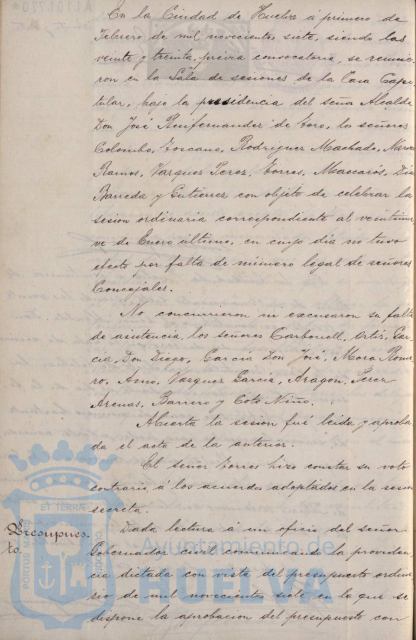 En la Ciudad de Huelva á primero de
Febrero de mil novecientos siete, siendo las
veinte y treinta, previa convocatoria, se reunie-
ron en la Sala de sesiones de la Casa Capi-
tular, bajo la presidencia del señor Alcalde
Don José de Toro, los señores
Colombo, Toscano, Rodriguez Machado,
Ramos, Vazquez Perez, Torres, Mascarós,
Barreda y Gutierrez con objeto de celebrar la
sesion ordinaria correspondiente al veintinue-
ve de Enero último, en cuyo dia no tuvo
efecto por falta de número legal de señores
Concejales.
No concurrieron ni excusaron su falta
de asistencia, los señores Carbonell, Ortiz, Gar-
cia, Don Diego, Garcia Don José, Mora Rome-
ro, Vazquez Garcia, Aragon, Perez
Arenas, Barrero y Coto Niño.
Abierta la sesion fué leida y aproba-
da el acta de la anterior.
El señor Torres hizo constar su voto
contrario á los acuerdos adoptados en la sesion
secreta.
Presupues-
to.
Dada lectura á un oficio del señor
Gobernador civil comunicando la providen-
cia dictada con vista del presupuesto ordina-
rio de mil novecientos siete en la que se
dispone la aprobacion del presupuesto con
Ayuntamiento de
HUELVA